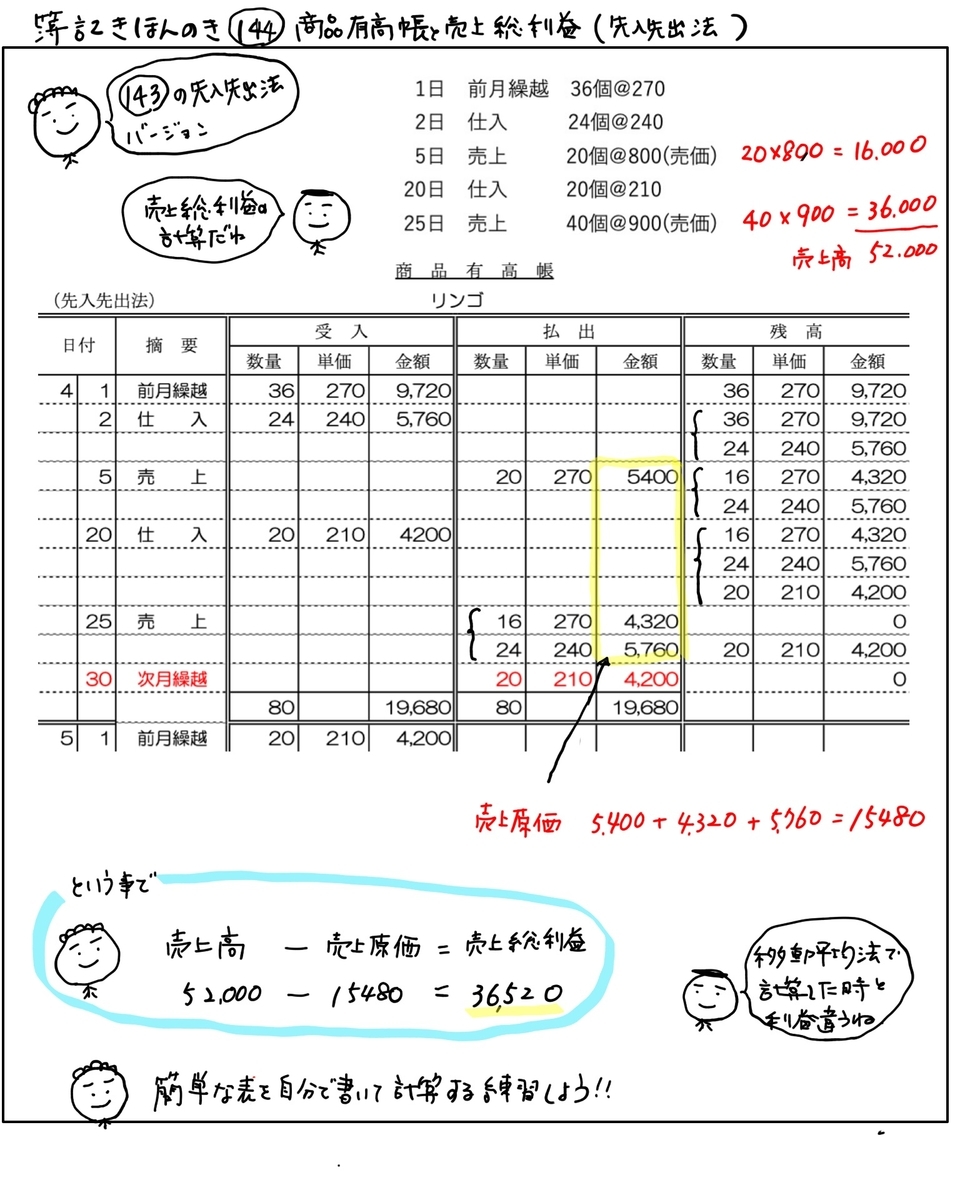 簿記きほんのき 144 商品有高帳と売上総利益（先入先出法）
143の先入先出法
バージョン
売上総利益の
計算だね
1日 前月繰越 36個@270
2日 仕入 24個@240
5日 売上 20個@800(売価) 20×800=16.000
20日 仕入 20個@210
25日 売上 40個@900(売価) 40×900=36.000
売上高 52.000
商品有高帳
（先入先出法） リンゴ
日付 摘要 受入 払出 残高
数量 単価 金額 数量 単価 金額 数量 単価 金額
4 1 前月繰越 36 270 9,720 36 270 9,720
2 仕入 24 240 5,760 36 270 9,720
24 240 5,760
5 売上 20 270 5400 16 270 4,320
24 240 5,760
20 仕入 20 210 4200 16 270 4,320
24 240 5,760
20 210 4,200
25 売上 16 270 4,320 0
24 240 5,760 20 210 4,200
30 次月繰越 20 210 4,200 0
80 19,680 80 19,680
5 1 前月繰越 20 210 4,200
売上原価 5.400+4.320+5.760=15480
という事で
売上高 － 売上原価 = 売上総利益
52,000 － 15480 = 36,520
移動平均法で
計算した時と
利益違うね
簡単な表を自分で書いて計算する練習しよう!!